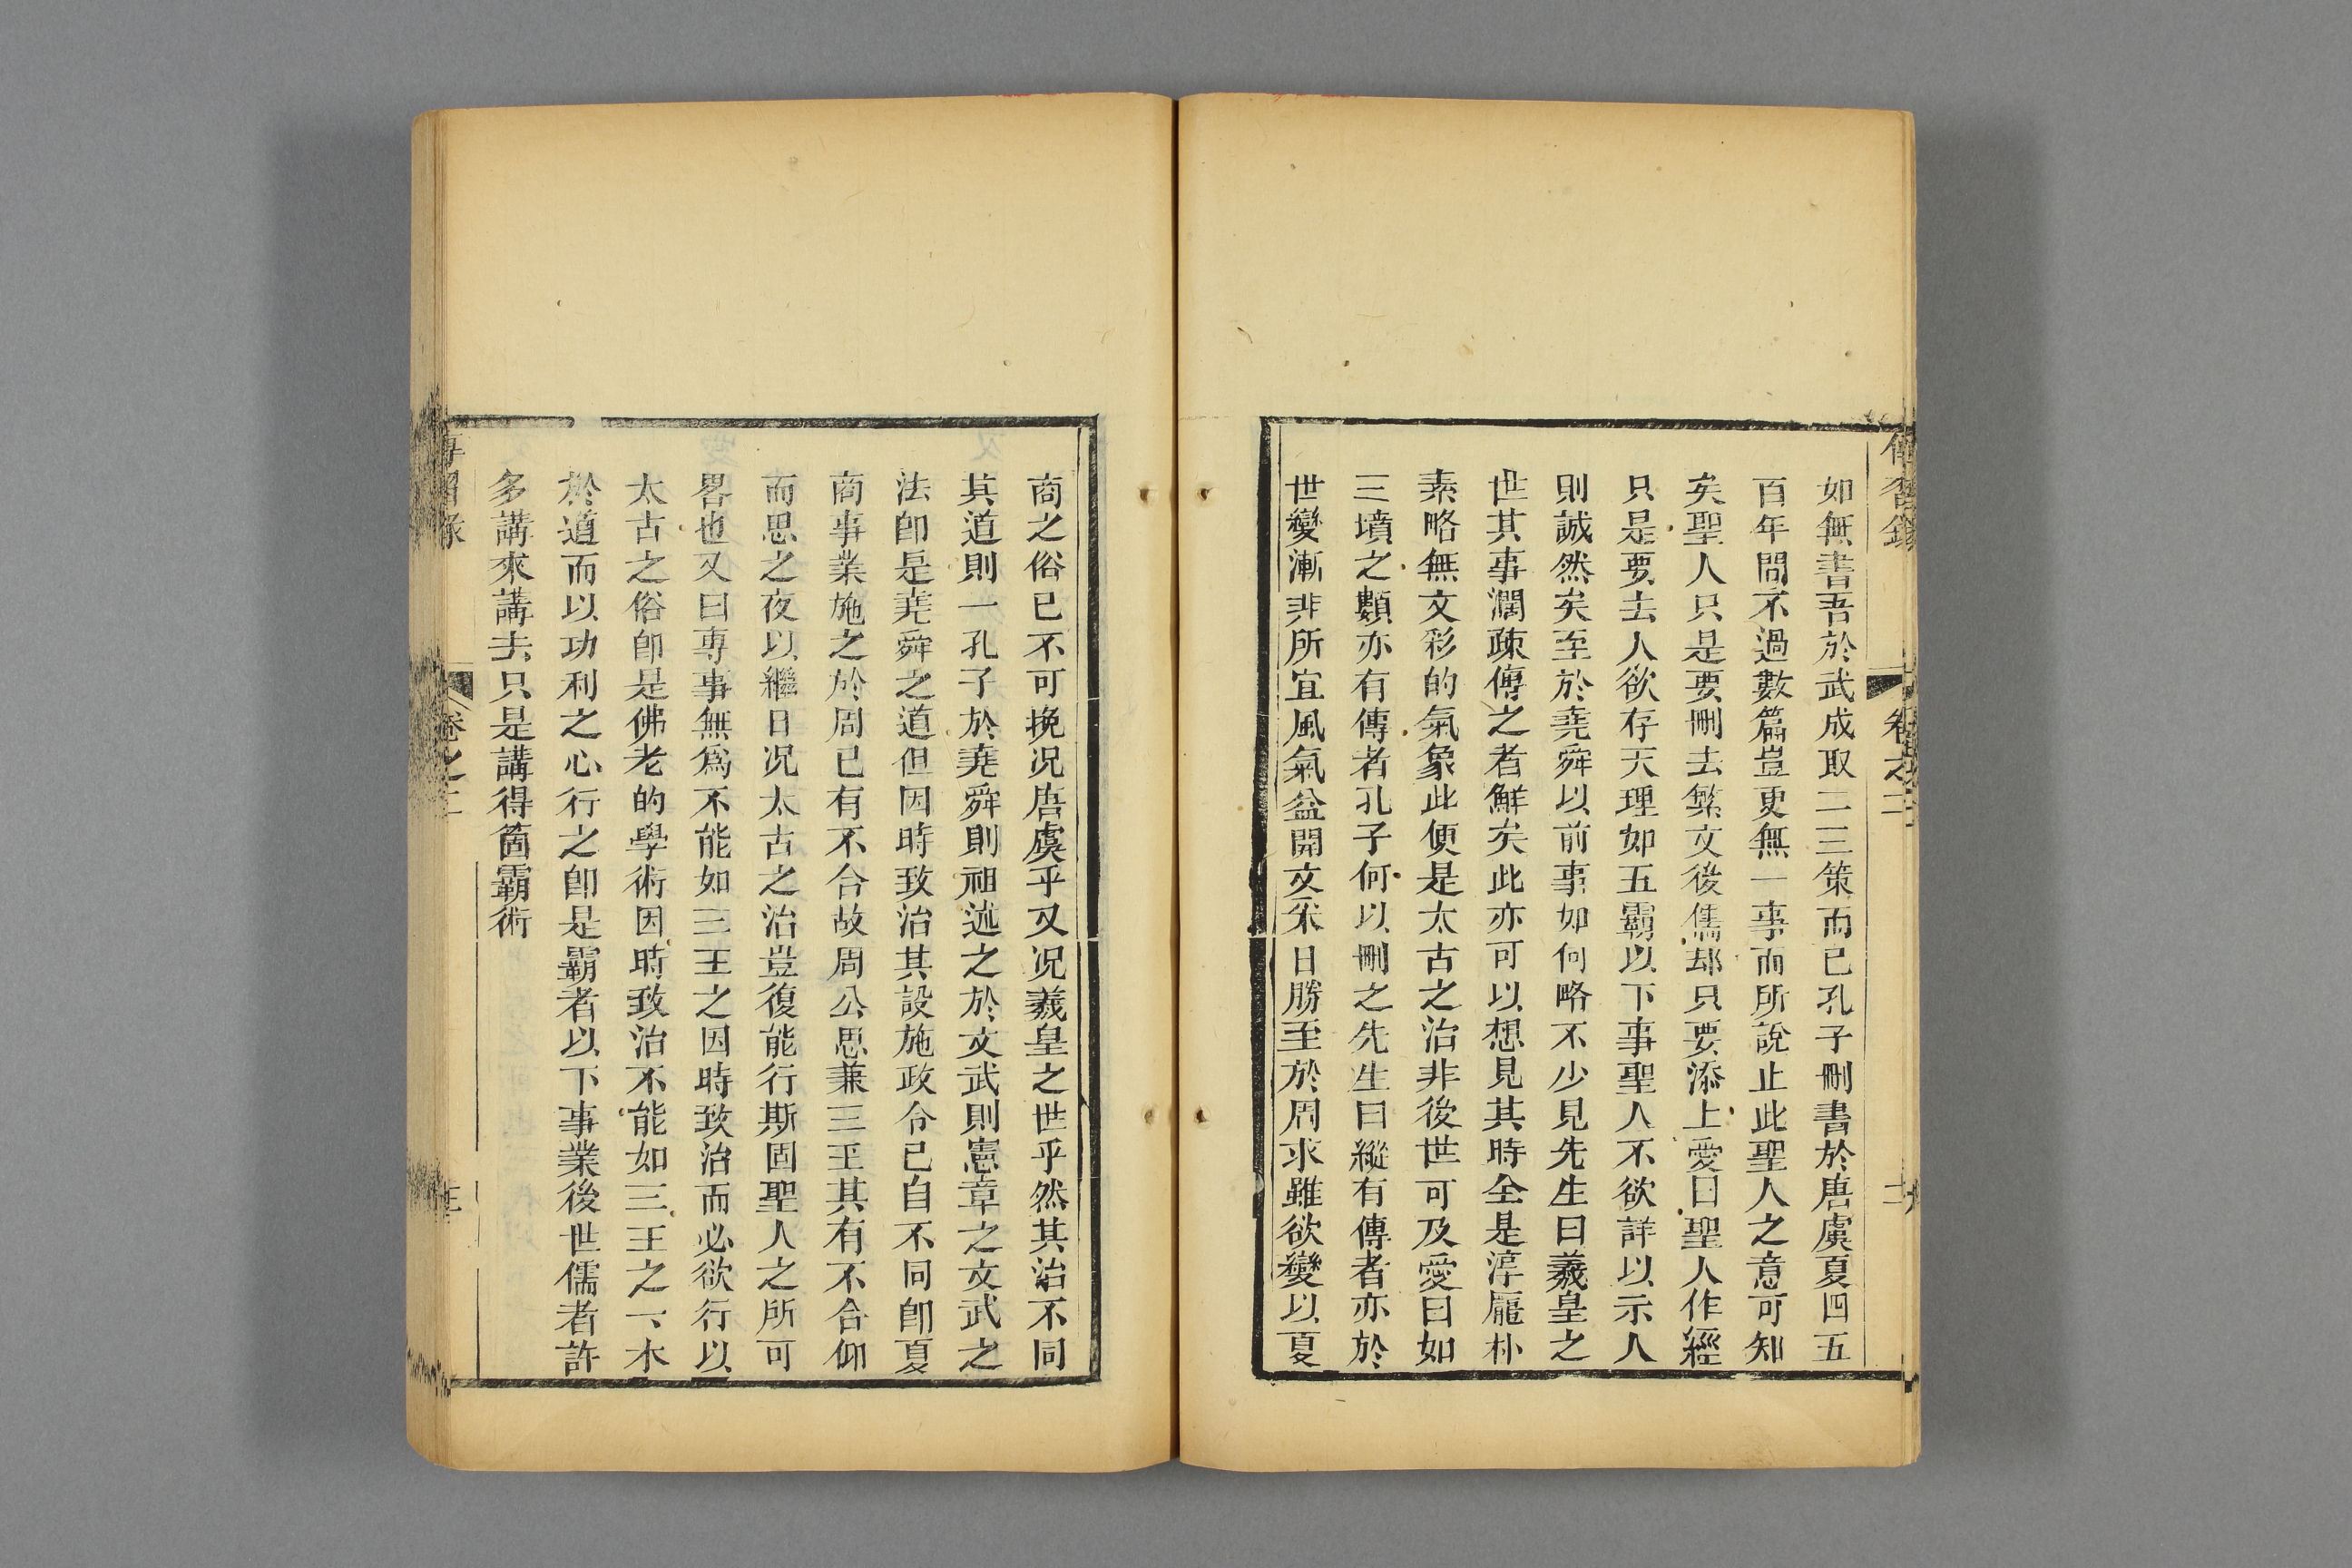 傳習錄 卷之二
如無書吾於武成取二三策而已孔子刪書於唐虞夏四五
百年間不過數篇豈更無一事而所說止此聖人之意可知
矣聖人只是要刪去繁文後儒却只要添上愛曰聖人作經
只是要去人欲存天理如五霸以下事聖人不欲詳以示人
則誠然矣至於堯舜以前事如何略不少見先生曰羲皇之
世其事濶疎傳之者鮮矣此亦可以想見其時全是淳龐朴
素略無文彩的氣象此便是太古之治非後世可及愛曰如
三墳之類亦有傳者孔子何以刪之先生曰縱有傳者亦於
世變漸非所宜風氣益開文采日勝至於周末雖欲變以夏
商之俗已不可挽况唐虞乎又况羲皇之世乎然其治不同
其道則一孔子於堯舜則祖述之於文武則憲章之文武之
法卽是堯舜之道但因時致治其設施政令已自不同卽夏
商事業施之於周已有不合故周公思兼三王其有不合仰
而思之夜以繼日况太古之治豈復能行斯固聖人之所可
畧也又曰專事無爲不能如三王之因時致治而必欲行以
太古之俗卽是佛老的學術因時致治不能如三王之一本
於道而以功利之心行之卽是霸者以下事業後世儒者許
多講來講去只是講得箇霸術
傳習錄 卷之二